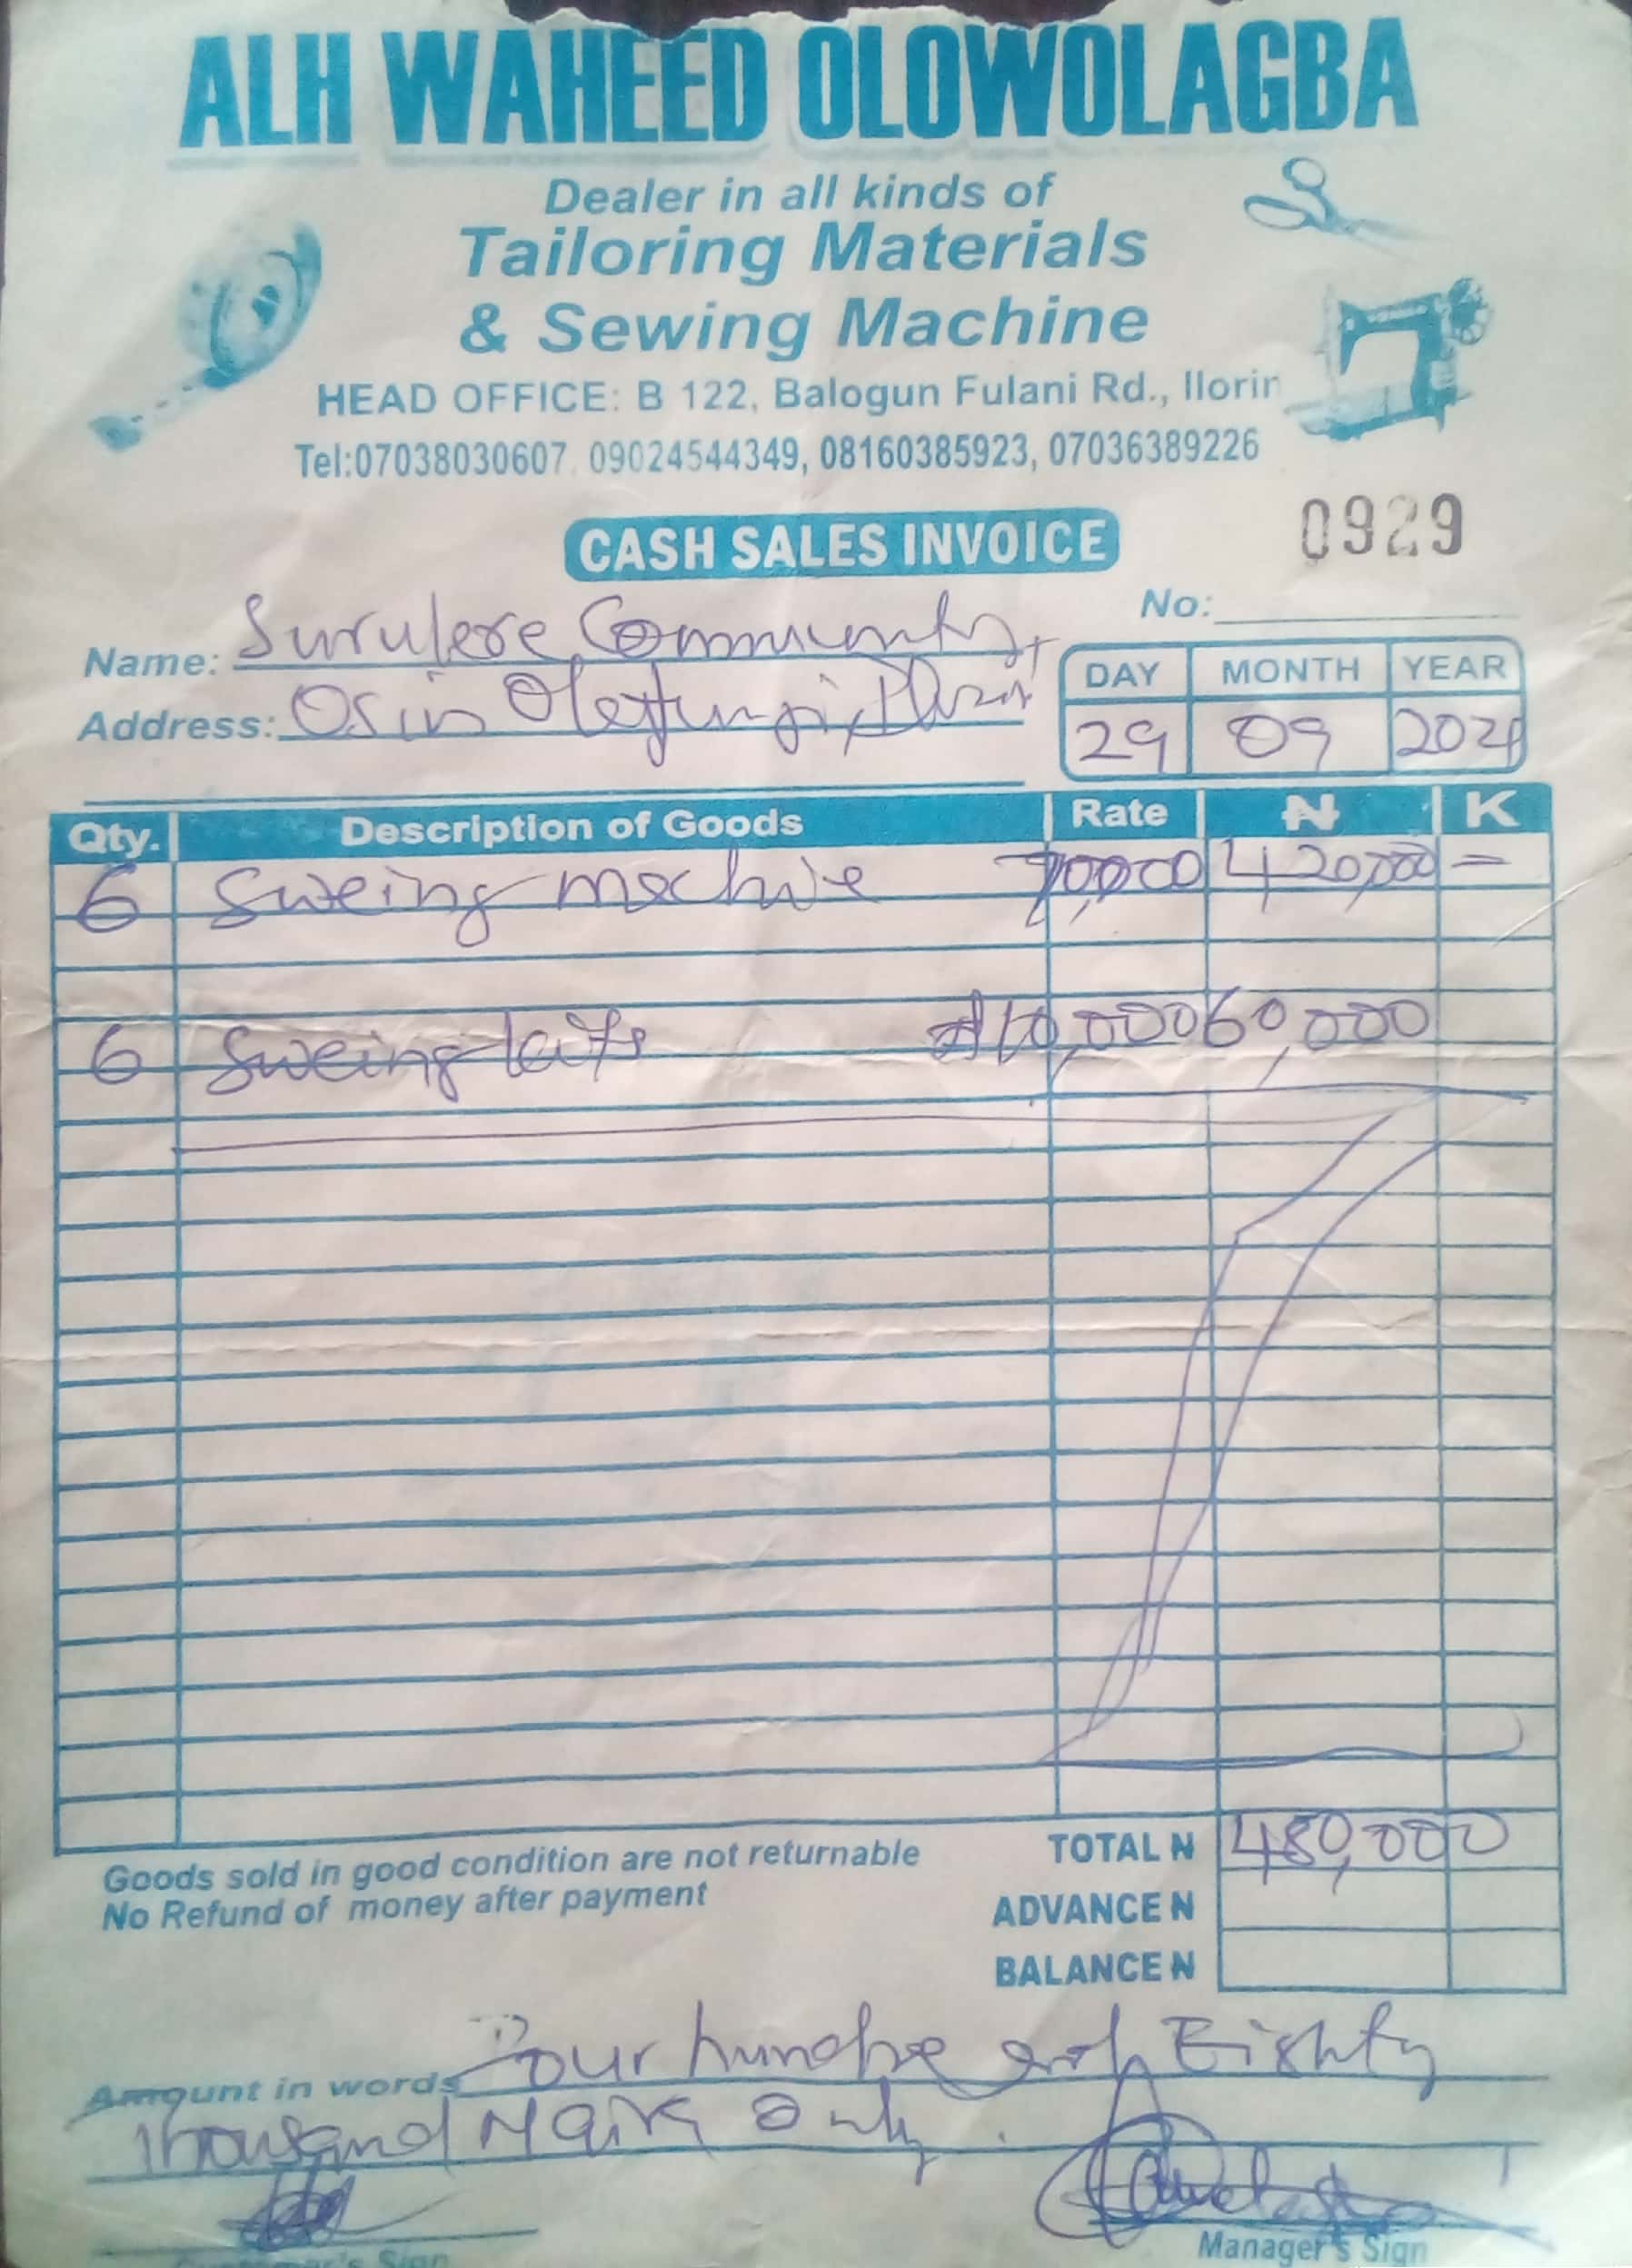 ALH WAHEED OLOWOLAGBA
Dealer in all kinds of
Tailoring Materials
& Sewing Machine
HEAD OFFICE: B 122, Balogun Fulani Rd., Ilorin
Tel:07038030607, 09024544349, 08160385923, 07036389226
CASH SALES INVOICE
0929
No:
Name: Surulere Community,
Address: Osin
DAY MONTH YEAR
29 09 202
Qty. Description of Goods Rate ₦ K
6 Sweing machine 70,000 420,000 =
6 Sweing kits 10,000 60,000
Goods sold in good condition are not returnable
No Refund of money after payment
TOTAL ₦ 480,000
ADVANCE ₦
BALANCE ₦
Amount in words Four hundre and Eighty
thousand Naira Only.
Customer's Sign
Manager's Sign